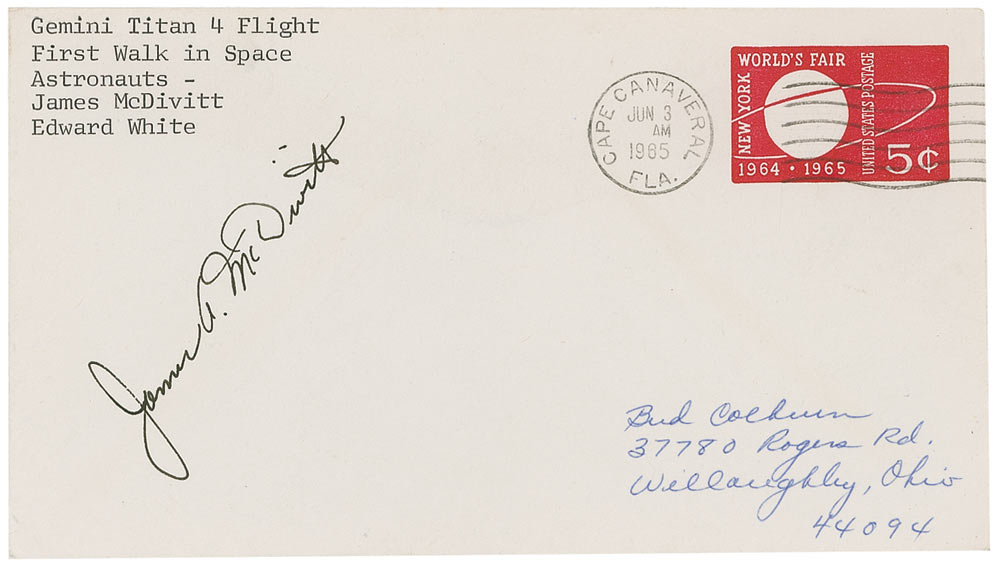 Gemini Titan 4 Flight
First Walk in Space
Astronauts -
James McDivitt
Edward White
CAPE CANAVERAL
JUN 3
AM
1965
FLA.
WORLD'S FAIR
NEW YORK
UNITED STATES POSTAGE
5¢
1964 · 1965
James A. McDivitt
Bud
37780 Rogers Rd.
Willoughby, Ohio
44094